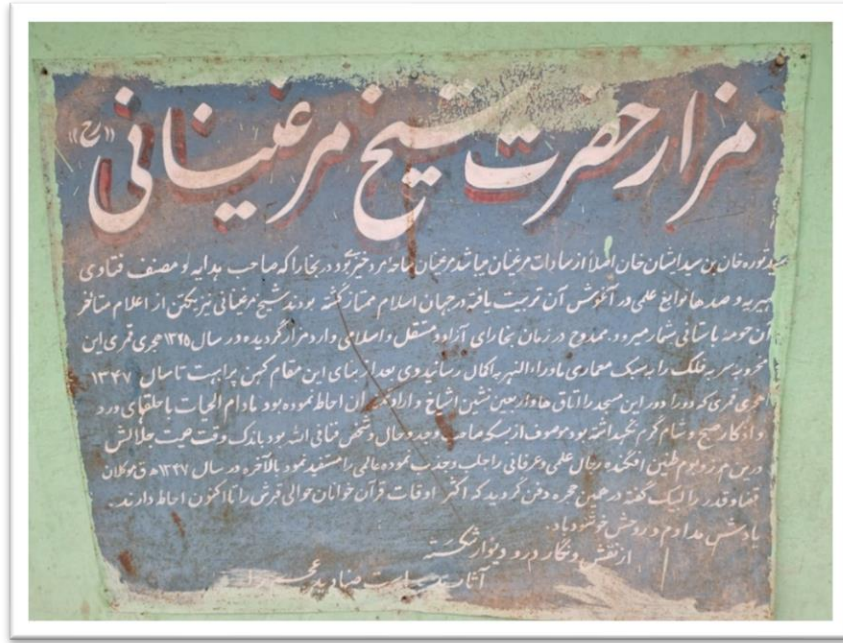 مزار حضرت شیخ مرغینانی «رح»
سید توره خان بن سید ایشان خان اصلاً از سادات مرغینان میباشد مرغینان ساحه مردخیزی بود در بخارا که صاحب هدایه و مصنف فتاوی
و صدها نوابغ علمی در آغوش آن تربیت یافته در جهان اسلام ممتاز گشته بودند شیخ مرغینانی نیز یکتن از اعلام متأخر
آن حومه باستانی بشمار میرود. ممدوح در زمان بخارای آزاد و مستقل و اسلامی وارد مزار گردیده و در سال ۱۳۲۵ هجری قمری این
مخروبه سر به فلک را به سبک معماری ماوراء النهر به اکمال رسانید وی بعد از بنای این مقام کهن پر ابهت تا سال ۱۳۴۷
هجری قمری که دورا دور این مسجد را اتاق ها و اربعین نشین اشیاخ و ان احاط نموده بود مادام الحیات با حلقهای ورد
و اذکار صبح و شام گرم نگهداشته بود موصوف از بسکه صاحب وجد و حال و شخص فنافی الله بود باندک وقت صیت جلالش
درین مرز و بوم طنین افگنده رجال علمی و عرفانی را جلب و جذب نموده عالمی را مستفید نمود بالآخره در سال ۱۳۴۷ ه ق موکلان
قضا و قدر را لبیک گفته در همین حجره دفن گردید که اکثر اوقات قرآن خوانان حوالی قبرش را تا اکنون احاط دارند.
یادش مدام و روحش خوشنود باد.
از نقش و نگار در و دیوار شکسته
آثار صنادید عجم را